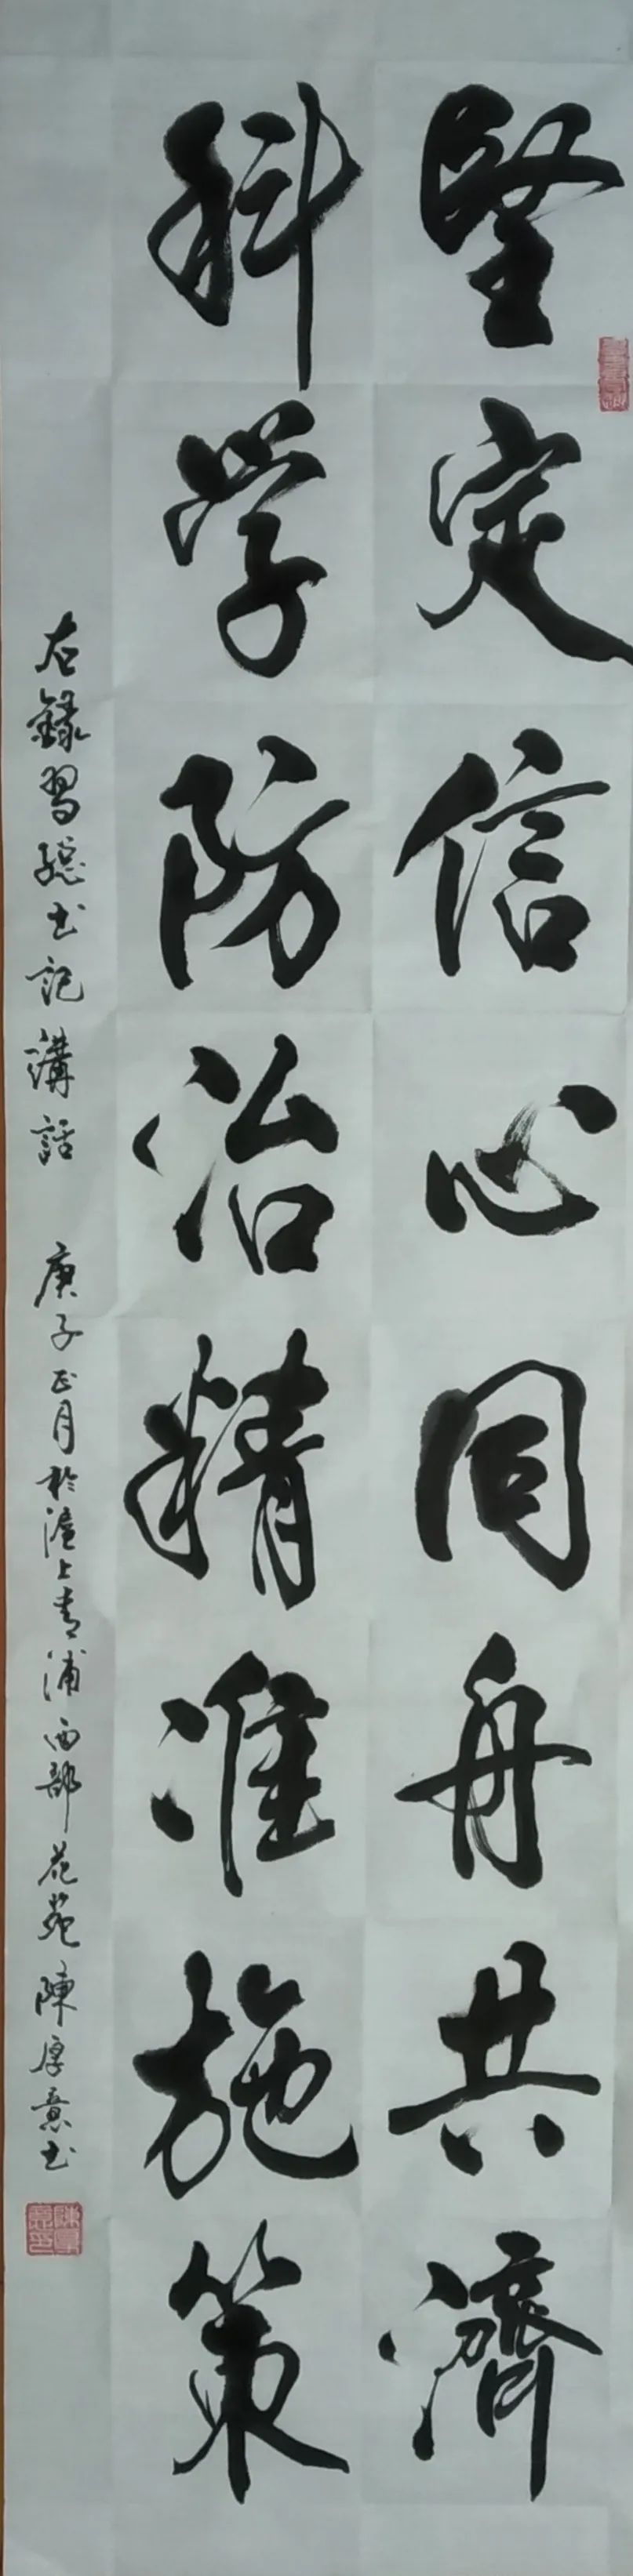 堅定信心同舟共濟
科学防治精准施策
右錄習總书記講話 庚子正月於滬上青浦西部花苑陳厚意书